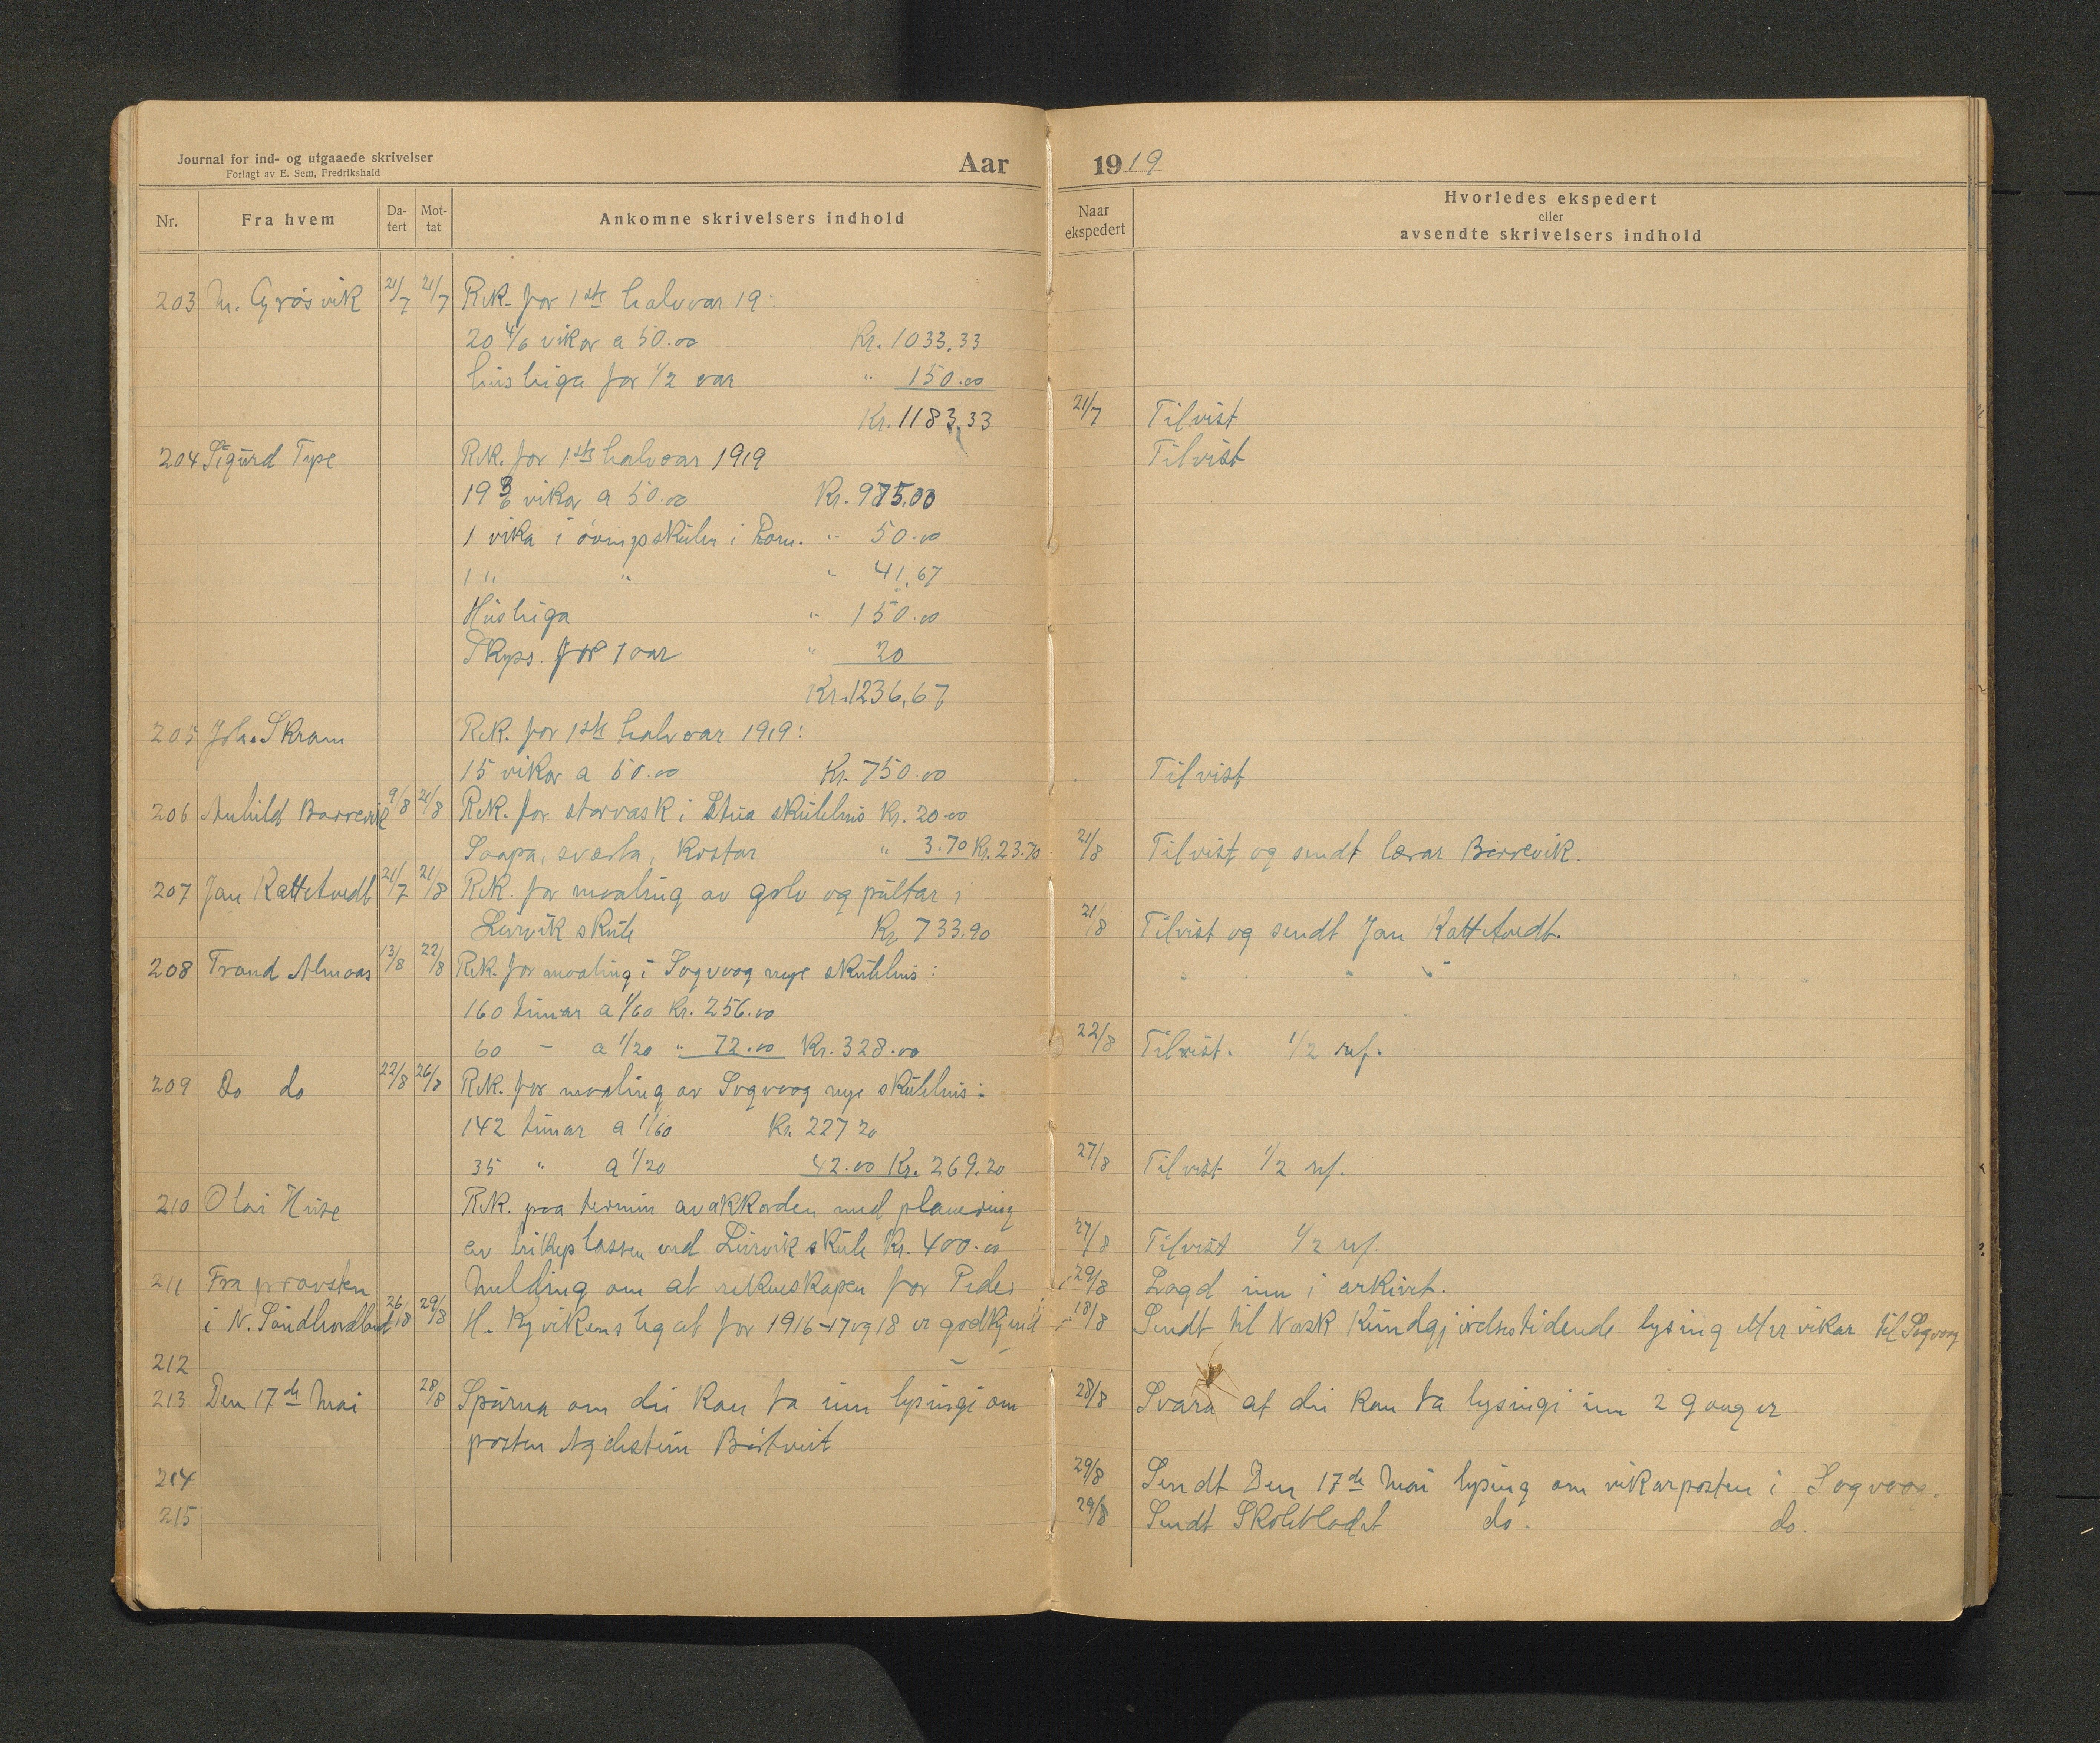 Journal for ind- og utgaaede skrivelser
Forlagt av E. Sem, Fredrikshald
Aar 1919
Nr. Fra hvem Da-tert Mot-tat Ankomne skrivelsers indhold Naar ekspedert Hvorledes ekspedert eller avsendte skrivelsers indhold
203 M. Grösvik 21/7 21/7 Rek. for 1ste halvaar 19:
20 4/6 vikor a 50.00 Kr. 1033,33
husleiga for 1/2 aar " 150.00
Kr. 1183,33 21/7 Tilvist
204 Sigurd Type Rek. for 1ste halvaar 1919 Tilvist
19 3/6 vikor a 50.00 Kr. 975.00
1 vika i övingsskulen i " 50.00
1 " " " 41,67
Husleiga " 150.00
Skyss. for 1 aar " 20
Kr. 1236,67
205 Joh. Skram Rek. for 1ste halvaar 1919:
15 vikor a 50.00 Kr. 750.00 Tilvist
206 Anhild Borrevik 9/8 21/8 Rek. for storvask i Stua skulehus Kr. 20.00
Saapa, sværta, kostar " 3.70 Kr. 23.70 21/8 Tilvist og sendt lærar Börrevik.
207 Jan Kattetvedt 21/7 21/8 Rek. for maaling av golv og pultar i
Leirvik skule Kr. 733.90 21/8 Tilvist og sendt Jan Kattetvedt.
208 Trond Almaas 13/8 22/8 Rek. for maaling i Sagvaag nye skulehus: " " "
160 timar a 1/60 Kr. 256.00
60 — a 1/20 " 72.00 Kr. 328.00 22/8 Tilvist. 1/2 ref.
209 Do do 22/8 26/8 Rek. for maaling av Sagvaag nye skulehus:
142 timar a 1/60 Kr. 227 20
35 " a 1/20 42.00 Kr. 269.20 27/8 Tilvist 1/2 ref.
210 Olai Huse Rek. paa termin av akkorden med planering
av leikeplassen ved Leirvik skule Kr. 400.00 27/8 Tilvist 1/2 ref.
211 Fra prosten Melding om at rekneskapen for Peder 29/8 Lagd inn i arkivet.
i N. Sundhordland 26/8 29/8 H. Kyvikens legat for 1916-17 og 18 er godkjend 18/8 Sendt til Norsk Kundgjördsstidende lysing etter vikar til Sagvaag
212
213 Den 17de Mai 28/8 Spurna om dei kan ta inn lysingi om 28/8 Svara at dei kan ta lysingi inn 2 gonger
posten Börtveit
214 29/8 Sendt Den 17de Mai lysing om vikarposten i Sagvaag.
215 29/8 Sendt Skolebladet do. do.